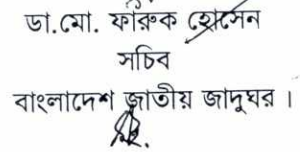 ডা.মো. ফারুক হোসেন
সচিব
বাংলাদেশ জাতীয় জাদুঘর ।